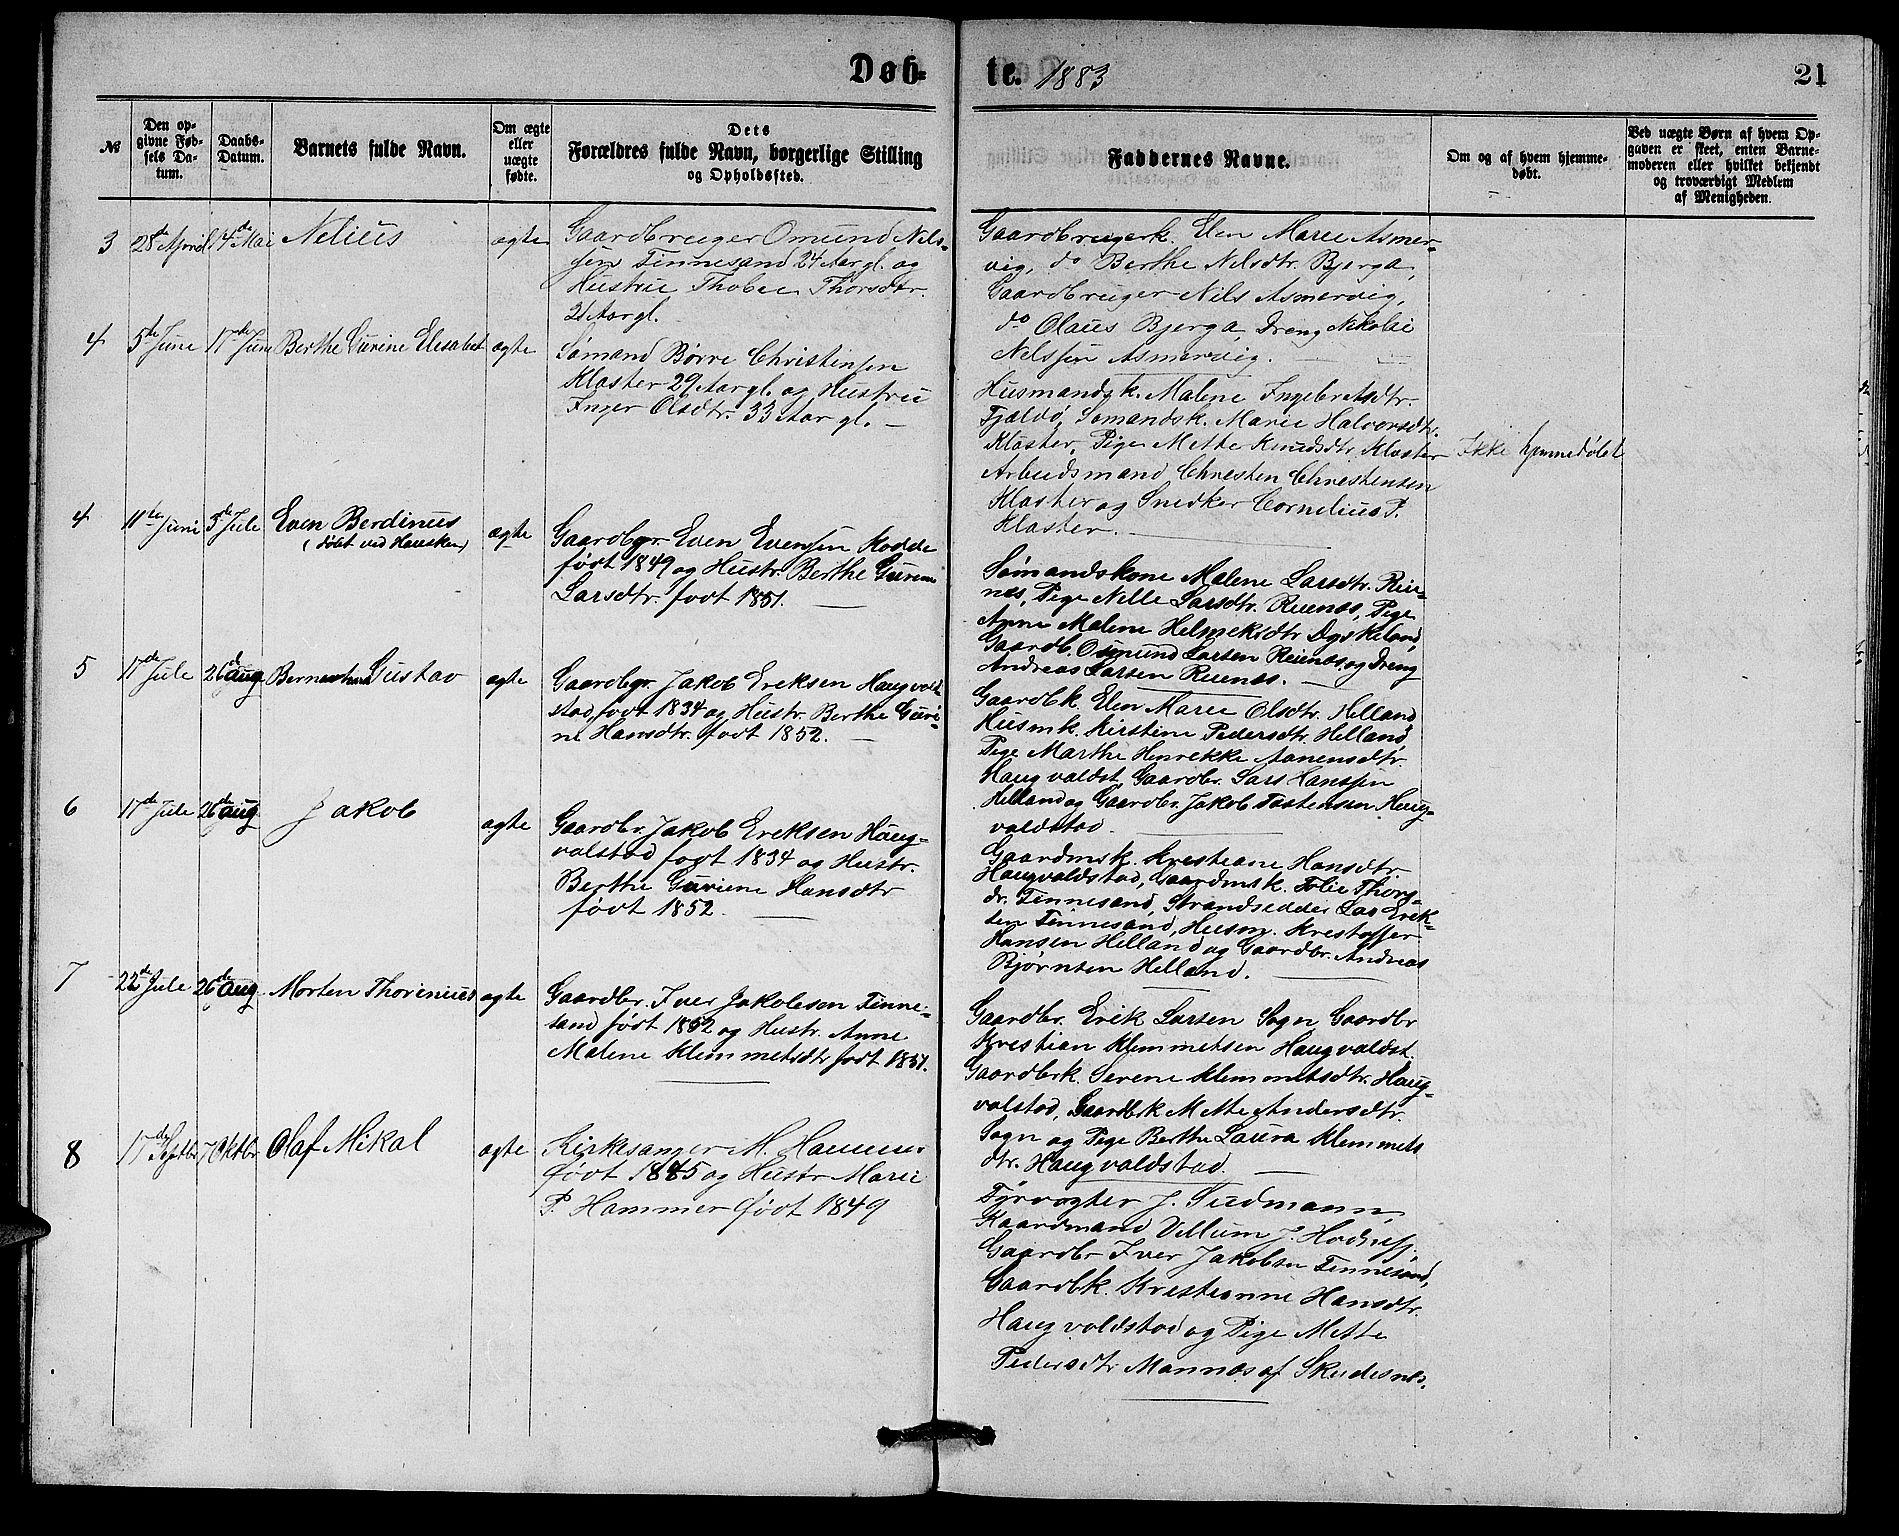 Døb-
te. 1883
21
№
Den op-
givne Fød-
sels Da-
tum.
Daabs-
Datum.
Barnets fulde Navn.
Om ægte
eller
uægte
fødte.
Dets
Forældres fulde Navn, borgerlige Stilling
og Opholdssted.
Faddernes Navne.
Om og af hvem hjemme-
døbt.
Ved uægte Børn af hvem Op-
gaven er skeet, enten Barne-
moderen eller hvilket bekjendt
og troværdigt Medlem
af Menigheden.
3 28de April 14de Mai Nelius ægte
Gaardbruger Omund Nils-
sen Tinnesand 24 Aar gl. og
Hustru Thobie Thorsdtr.
21 Aar gl.
Gaardbrugerk. Elen Marie Asmer-
vig, do Berthe Nelsdtr. Bjerga,
Gaardbruger Nils Asmervig,
do Olaus Bjerga, Dreng Nikolai
Nelssen Asmervig.
4 5te Juni 17de Juni Berthe Gurine Elisabet ægte
Sømand Børre Christensen
Kloster 29 Aar gl. og Hustru
Inger Olsdtr. 33 Aar gl.
Husmandsk. Malene Ingebretsdtr.
Fjeldø, Sømandsk. Marie Halvorsdtr.
Kloster, Pige Mette Knudsdtr. Kloster
Arbeidsmand Christen Christensen
Kloster og Snedker Cornelius P.
Kloster.
Ikke hjemmedøbt
4 11te Juni 5te Juli Even Berdinus
(døbt ved Hausken)
ægte
Gaardbgr. Even Evensen Kodde
født 1849 og Hustr. Berthe Gurine
Larsdtr. født 1851.
Sømandskone Malene Larsdtr. Rei-
næs, Pige Nille Larsdtr. Reienæs, Pige
Anne Malene Helmeksdtr. Dyskeland,
Gaardb. Osmund Larsen Reienæs og Dreng
Andreas Larsen Reienæs.
5 17de Juli 26de Aug Gustav ægte
Gaardbgr. Jakob Ereksen Haugvold
stad, født 1834 og Hustr. Berthe Guri-
ne Hansdtr. født 1852.
Gaardbk. Elen Marie Olsdtr. Helland
Husmk. Kirstine Pedersdtr. Helland
Pige Marthe Henrekke Aanensdtr.
Haugvaldst. Gaardbr. Lars Hanssen
Helland og Gaardbr. Jakob Tostensen Haug-
valdstad.
6 17de Juli 26de Aug Jakob ægte
Gaardbr. Jakob Ereksen Haug-
valstad født 1834 og Hustr.
Berthe Guriene Hansdtr
født 1852.
Gaardmsk. Krestiane Hansdtr.
Haugvaldstad, Gaardmsk. Tobie Thors-
dr. Tinnesand, Strandsidder Lar Erek-
sen Tinnesand, Husm. Krestoffer
Hansen Helland og Gaardbr. Andreas
Bjørnsen Helland.
7 22de Juli 26de Aug. Morten Thorinius ægte
Gaardbr. Iver Jakobsen Tinne-
sand født 1852 og Hustr. Anne
Malene Klemmetsdtr født 1857.
Gaardbr. Erik Larsen Sogn Gaardbr
Krestian Klemmetsen Haugvaldst.
Gaardbrk. Serene Klemmetsdtr. Haug-
valstad, Gaardbk Mette Andersdtr.
Sogn og Pige Berthe Laura Klemmets
dtr. Haugvaldstad.
8 17de Septbr 7 Oktbr Olaf Mikal ægte
Kirkesanger M. Hammer
født 1845 og Hustr Marie
P. Hammer født 1849
Fyrvogter J. Sudmann,
Kaardmand Villum J. Hodnef,
Gaardbr Iver Jakobsen Tinnesand,
Gaardbk. Krestianne Hansdtr.
Haugvoldstad og Pige Mette
Pedersdtr Mannæs af Skudesnæs.